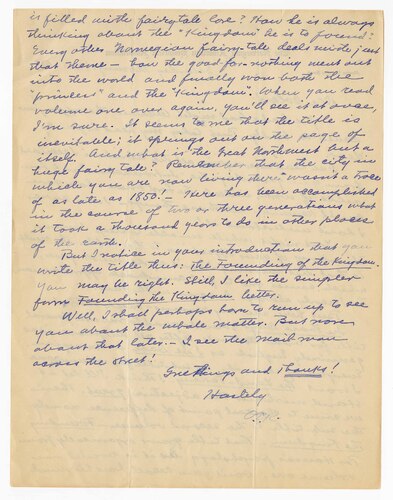 is filled with fairytale lore? How he is always
thinking about the "Kingdom" he is to found?
Every other Norwegian fairy-tale deals with just
that theme — how the good-for-nothing went out
into the world and finally won both the
"princess" and the "Kingdom". When you read
volume one over again, you'll see it at once,
I'm sure. It seems to me that the title is
inevitable; it springs out on the page of
itself. And what is the Great Northwest but a
huge fairy tale? Remember that the city in
which you are now living there wasn't a trace
of as late as 1850! — Here has been accomplished
in the course of two or three generations what
it took a thousand years to do in other places
of the earth.
But I notice in your introduction that you
write the title thus: The Founding of the Kingdom
You may be right. Still, I like the simpler
form Founding the Kingdom better.
Well, I shall perhaps have to run up to see
you about the whole matter. But more
about that later. — I see the mail man
across the street!
Greetings and Thanks!
Hastily